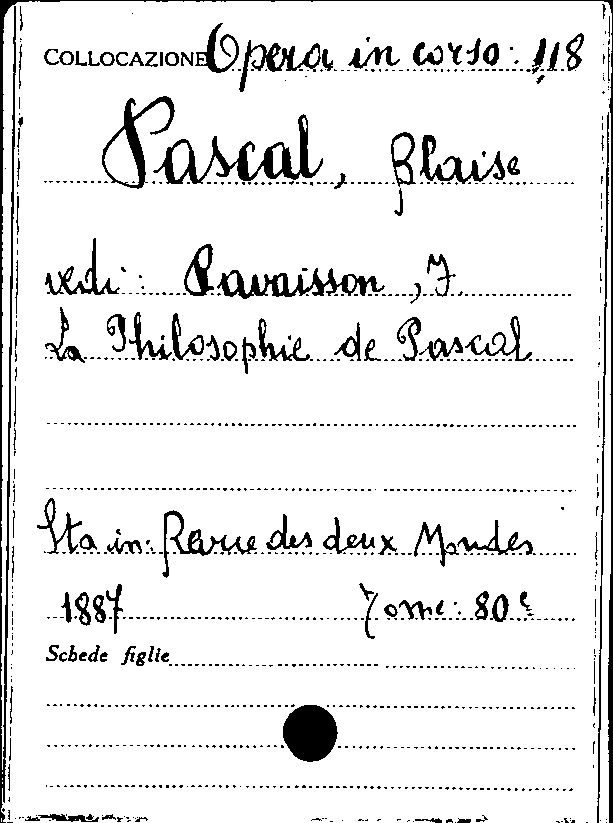 COLLOCAZIONE Opera in corso: 118
Pascal, Blaise
vedi: Ravaisson, F.
La Philosophie de Pascal
Sta in: Revue des deux Mondes
1887 Tome: 80e
Schede figlie